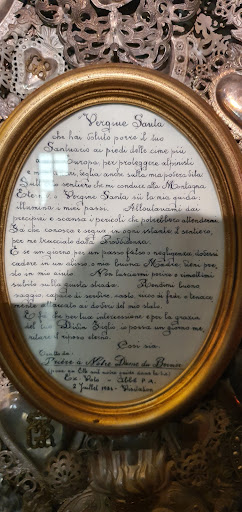 "Vergine Santa
che hai voluto porre il tuo
Santuario ai piedi delle cime più
Europa, per proteggere alpinisti
veglia anche sulla mia povera vita
sentiero che mi conduce alla Montagna
Vergine Santa sii la mia guida:
illumina i miei passi. Allontanami dai
precipizi e scansa i pericoli che potrebbero attendermi
che conosca e segua in ogni istante il sentiero,
per me tracciato dalla Provvidenza.
E se un giorno per un passo falso o negligenza dovessi
cadere in un abisso, o mia buona Madre, vieni pre_
sto in mio aiuto. Non lasciarmi perire e rimettimi
subito sulla giusta strada. Rendimi buono
saggio, capace di sentire, nobile, vivo di fede, e tenace_
mente attaccato ai doveri del mio stato.
E fa' che per tua intercessione e per la grazia
del tuo Divin Figlio io possa un giorno me_
ritare il riposo eterno.
Così sia.
Prière à Notre Dame de
Ex Voto - Abbé P.A.
2 Juillet